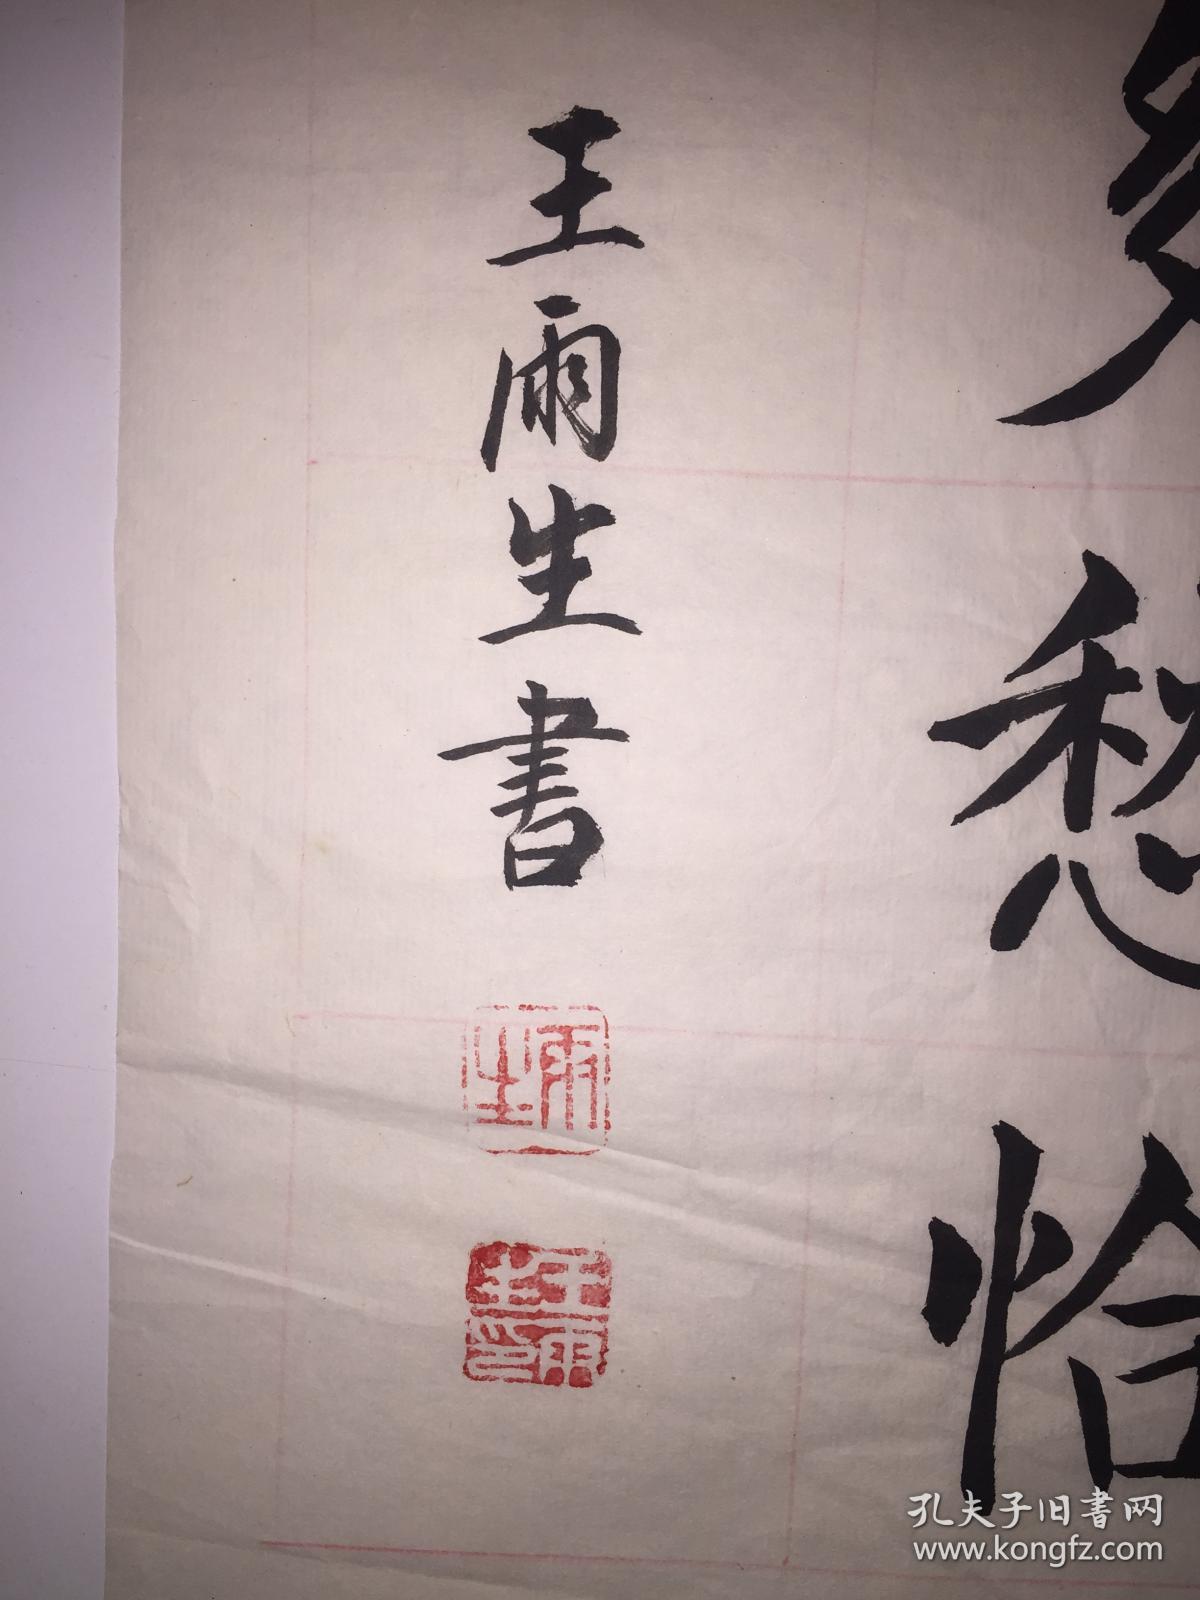 多愁恰
王雨生書
雨生
王雨生印
孔夫子旧書网
www.kongfz.com